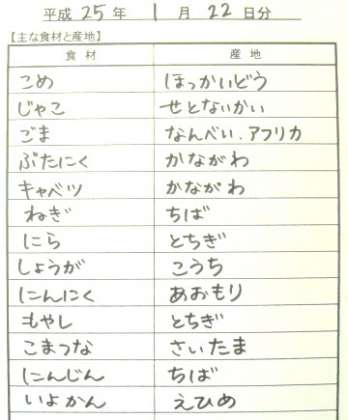 平成 25 年 1 月 22 日分
【主な食材と産地】
食材 産地
こめ ほっかいどう
じゃこ せとないかい
ごま なんべい.アフリカ
ぶたにく かながわ
キャベツ かながわ
ねぎ ちば
にら とちぎ
しょうが こうち
にんにく あおもり
もやし とちぎ
こまつな さいたま
にんじん ちば
いよかん えひめ